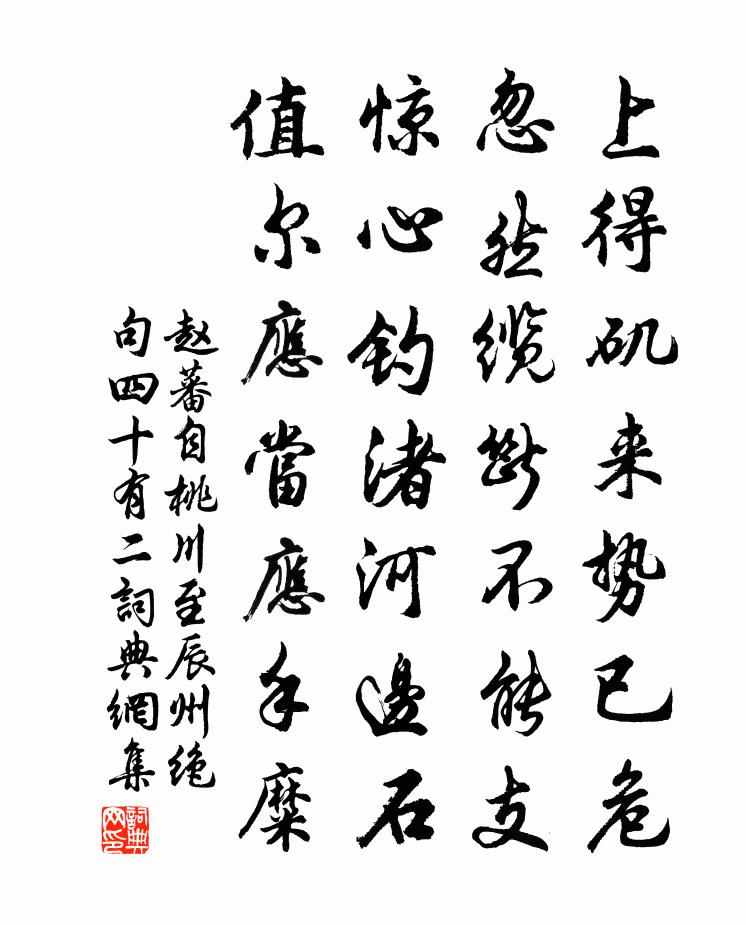 上得矶来势已危
忽然缆断不能支
惊心钓渚河邊石
值尔應當應手糜
赵蕃自桃川至辰州绝
句四十有二詞典網集
詞典
网印